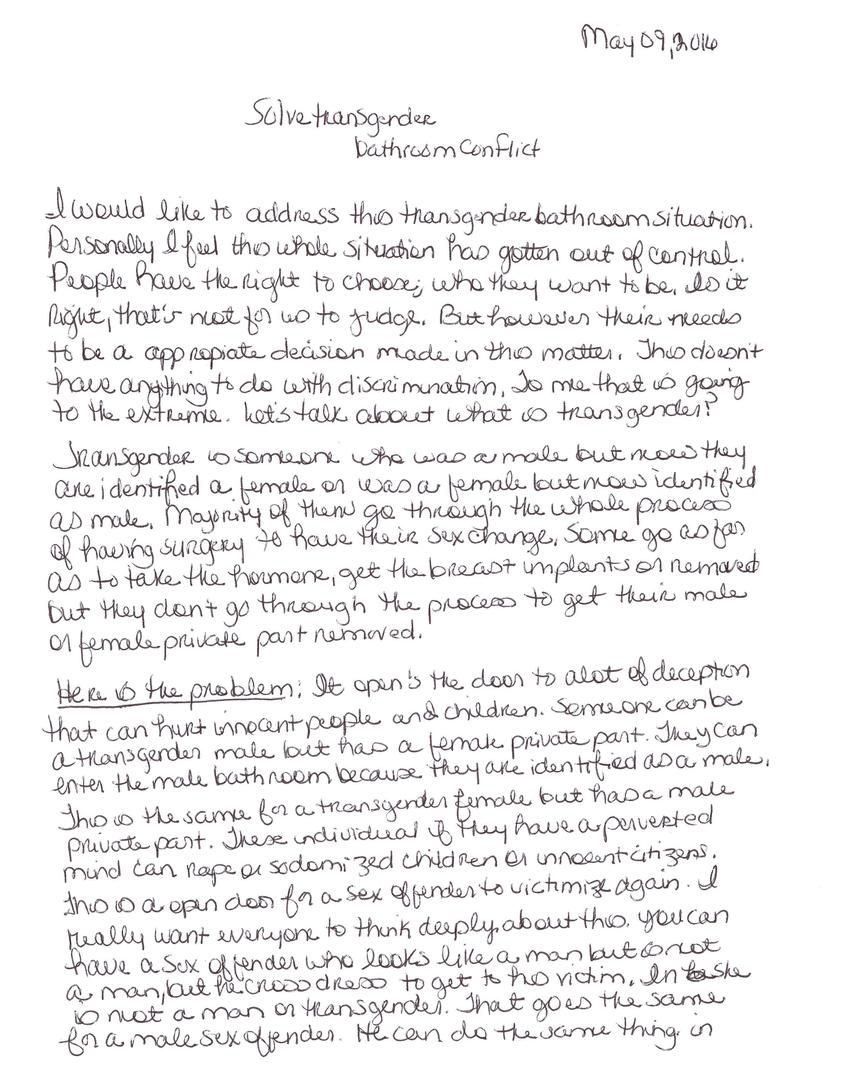 May 09, 2016
Solve transgender
bathroom Conflict
I would like to address this transgender bathroom situation.
Personally I feel this whole situation has gotten out of control.
People have the right to choose; who they want to be. Is it
right, that's not for us to judge. But however their needs
to be a appropiate decision made in this matter. This doesn't
have anything to do with discrimination, To me that is going
to the extreme. Let's talk about what is transgender?
Transgender is someone who was a male but now they
are identified a female or was a female but now identified
as male. Majority of them go through the whole process
of having surgery to have their sex change. Some go as far
as to take the hormone, get the breast implants or removed
but they don't go through the process to get their male
or female private part removed.
Here is the problem; It open's the door to alot of deception
that can hurt innocent people and children. Someone can be
a transgender male but has a female private part. They can
enter the male bathroom because they are identified as a male.
This is the same for a transgender female but has a male
private part. These individual if they have a perverted
mind can rape or sodomized children or innocent citizens.
This is a open door for a sex offender to victimize again. I
really want everyone to think deeply about this. You can
have a sex offender who looks like a man but is not
a man, but he cross dress to get to his victim. In she
is not a man or transgender. That goes the same
for a male sex offender. He can do the same thing in